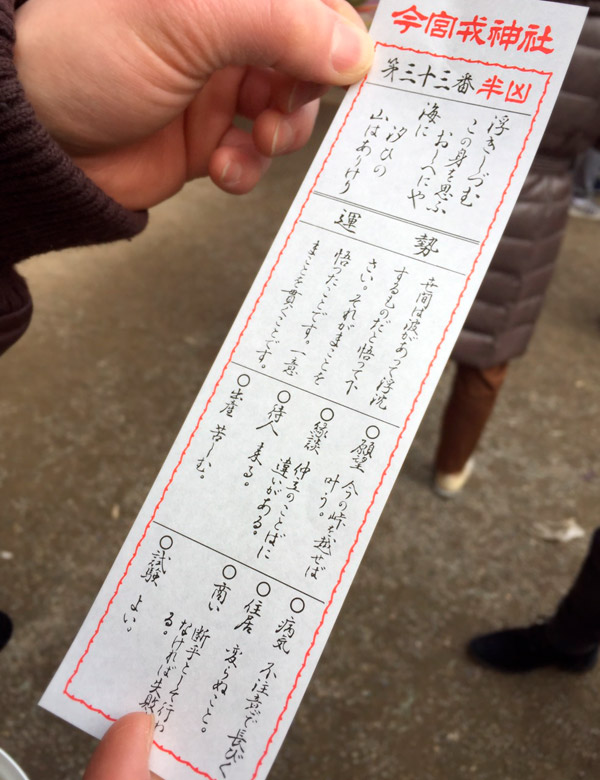 今宮戎神社
第三十三番 半凶
浮きしづむ
この身を思ふ
おしへにや
海に
汐ひの
山はありけり
運勢
世間は波があつて浮沈
するものだと悟って下
さい。それがまことを
悟つたことです。一意
まことを貫くことです。
○願望 今の峠を越せば
叶う。
○縁談 仲立のことばに
違いがある。
○待人 来る。
○出産 苦しむ。
○病気 不注意で長びく
○住居 変らぬこと。
○商い 断乎として行わ
なければ失敗
る。
○試験 よい。